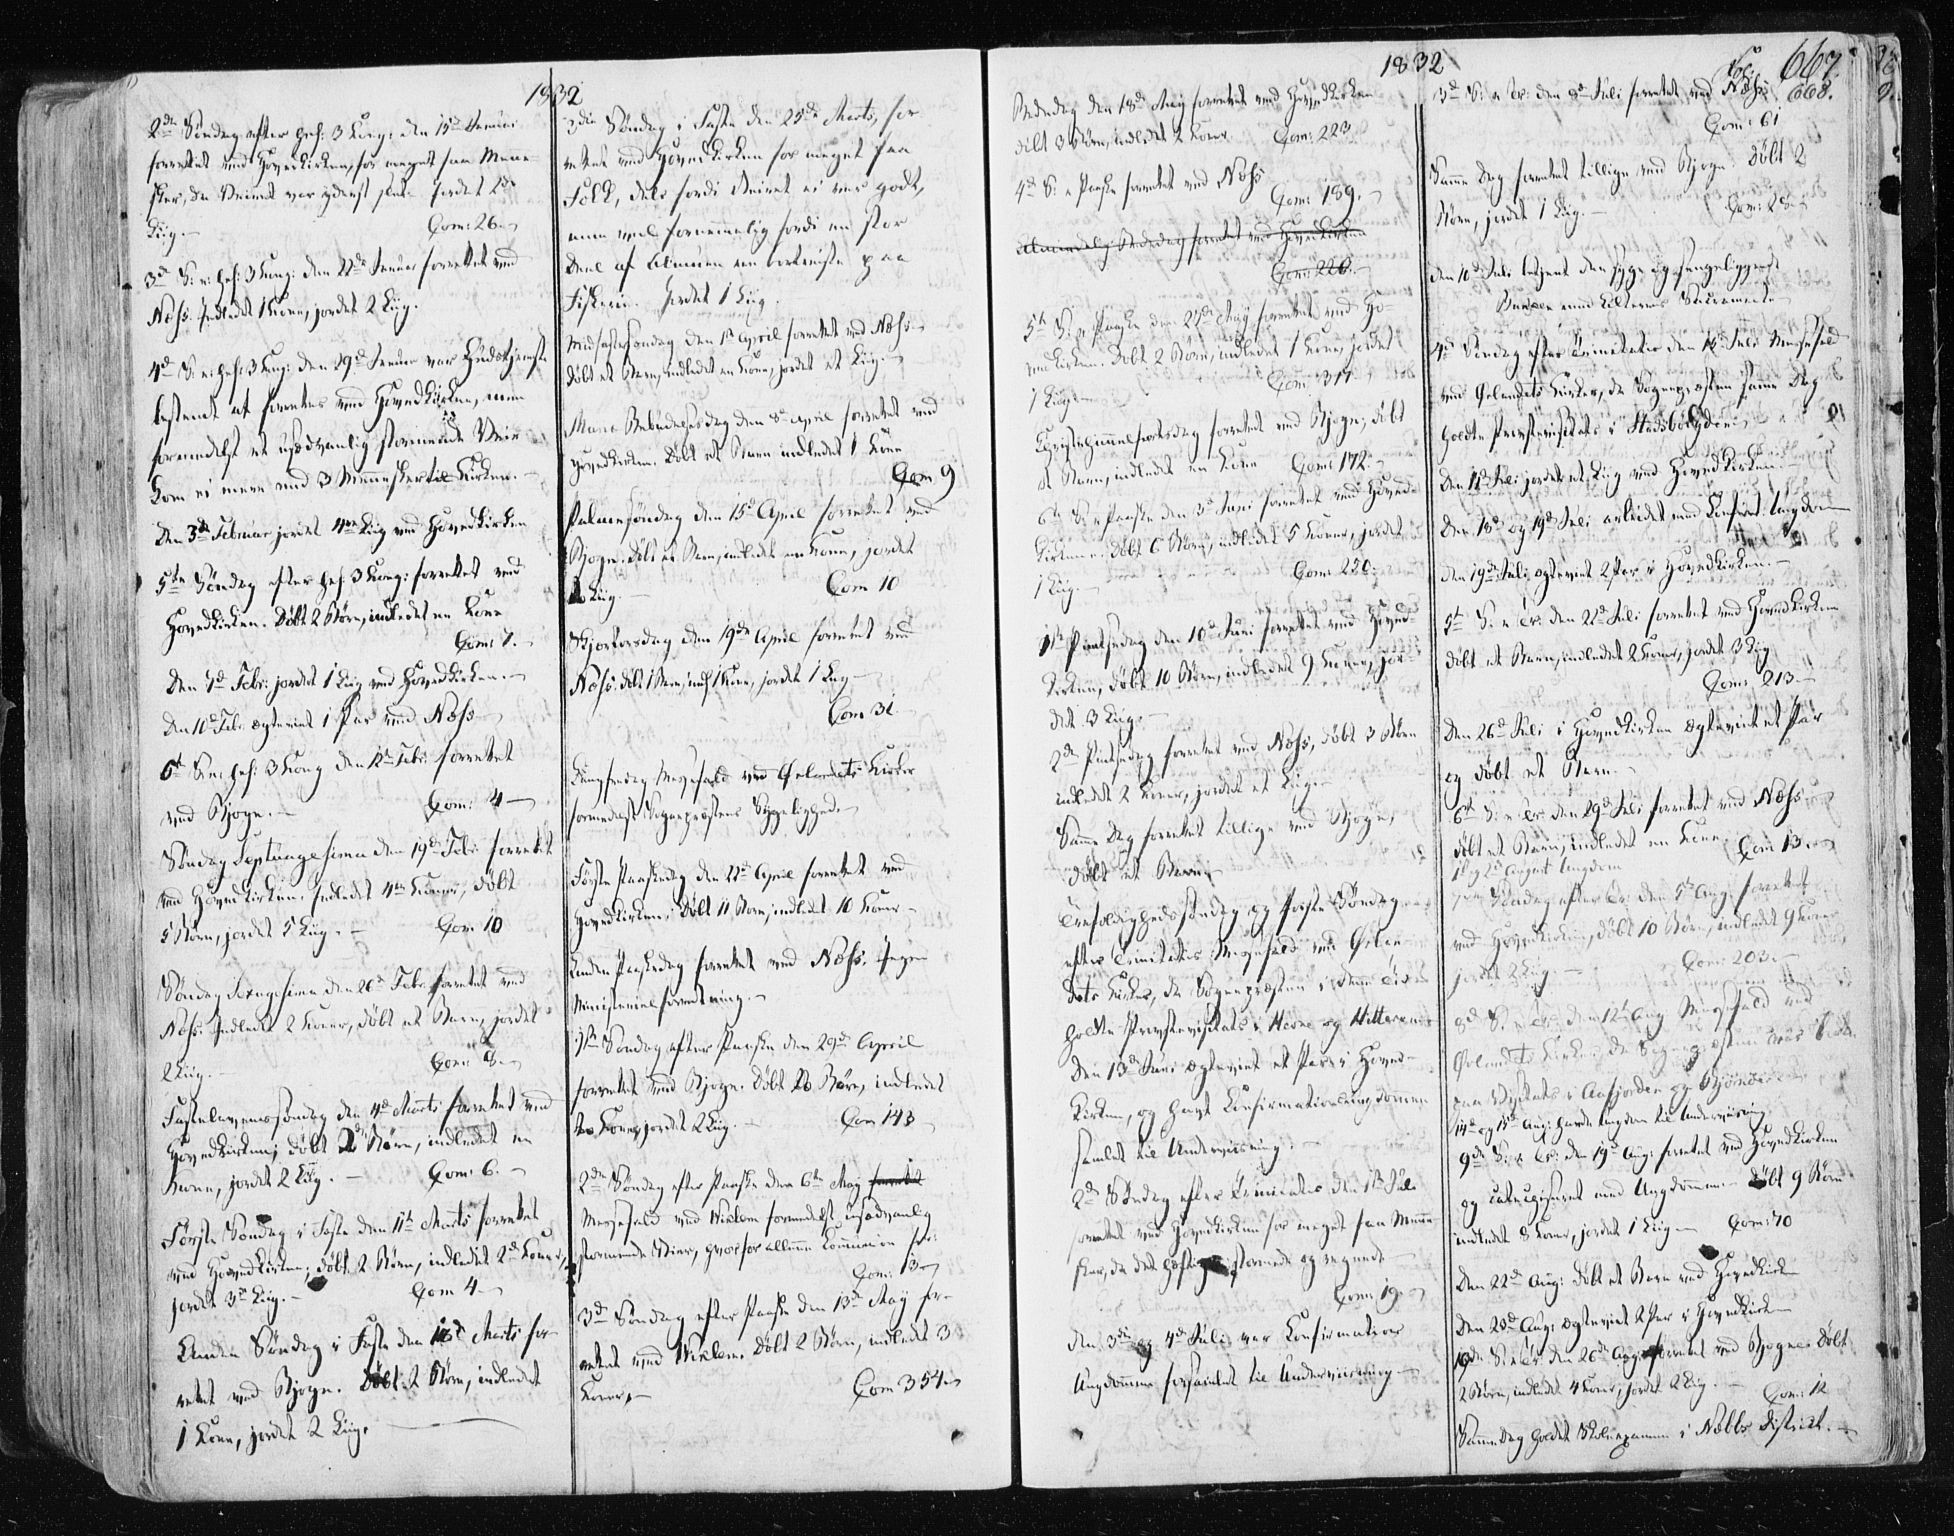 1832
2de Søndag efter hel: 3 Kong: den 15de Januar
forrettet ved Hovedkirken, for meget faa Menne-
sker, da Veiret var yderst slet. Jordet 1
Liig.
Com: 26.
3d S: e: hel: 3 Kong: den 22de Januar forrettet ved
Næss. Indledet 1 Kone, jordet 2 Liig.
4d S: e: hel: 3 Kong: den 29d Januar var Gudstjeneste
bestemt at forrettes ved Hovedkirken, men
formedelst et usædvanlig stormende Veir
kom ei mere end 3 Mennesker til Kirken.
Den 3de Februar jordet 4re Liig ved Hovedkirken
5te Søndag efter hel: 3 Kong: forrettet ved
Hovedkirken. Døbt 2 Børn, indledet en Kone
Com: 7.
Den 7d Febr: jordet 1 Liig ved Hovedkirken.
Den 11d Febr: ægteviet 1 Par ved Næss
6te S: e: hel: 3 Kong den 12te Febr: forrettet
ved Bjogn.
Com: 4
Søndag Septuagesima den 19d Febr: forrettet
ved Hovedkirken. Indledet 4re Koner, døbt
5 Børn, jordet 5 Liig.
Com: 10
Søndag Sexagesima den 26d Febr: forrettet ved
Næss. Indledet 2 Koner, døbt et Barn, jordet
2 Liig.
Com: 8.
Fastelavenssøndag den 4d Marts forrettet ved
Hovedkirken; døbt 2de Børn, indledet en
Kone, jordet 2 Liig.
Com: 6.
Første Søndag i Faste den 11te Marts forrettet
ved Hovedkirken; døbt 2 Børn, indledet 2de Koner,
jordet 3de Liig.
Com 4
Anden Søndag i Faste den 18d Marts for-
rettet ved Bjogn. Døbt 2 Børn, indledet
1 Kone, jordet 2 Liig.
3die Søndag i Faste den 25de Marts, for-
rettet ved Hovedkirken for meget faa
Folk, dels fordi Veiret ei var godt,
men vel fornemmelig fordi en stor
Deel af Almuen er bortreiste paa
Fiskerie. Jordet 1 Liig.
Midfastesøndag den 1st April forrettet ved Næss
døbt et Barn, indledet en Kone, jordet et Liig.
Mariæ Bebudelsesdag den 8de April forrettet ved
Hovedkirken. Døbt et Barn indledet 1 Kone
Com 9
Palmesøndag den 15d April forrettet ved
Bjogn. Døbt et Barn, indledet en Kone, jordet
Liig.
Com 10
Skjærtorsdag den 19de April forrettet ved
Næss. døbt 1 Barn, indl. 1 Kone, jordet 1 Liig
Com 31
Langfredag Messefald ved Ørlandets Kirker
formedelst Sognepræstens Sygelighed.
Første Paaskedag den 22d April forrettet ved
Hovedkirken. Døbt 11 Børn, indledet 10 Koner
Anden Paaskedag forrettet ved Næss. Ingen
Ministerialforretning.
1ste Søndag efter Paaske den 29de April
forrettet ved Bjogn. Døbt Børn, indledet
Koner, jordet 2 Liig.
Com 143
2den Søndag efter Paaske den 6te May forrettet
Messefald ved Viklem formedelst usædvanlig
stormende Veier, hvorfor alleene Communion
Com: 13
3d Søndag efter Paaske den 13de May for-
rettet ved Viklem. Døbt 2 Børn, indledet 3
Koner,
Com 354
1832
Bededag den 18d May forrettet ved Hovedkirken
døbt 3 Børn, indledet 2 Koner
Com: 223
4d S: e Paaske forrettet ved Næss
Com: 189.
Almindelig Bededag forrettet ved Hovedkirken
Com: 220.
5te S: e Paaske den 27de May forrettet ved Ho-
vedkirken. Døbt 2 Børn, indledet 1 Kone, jordet
1 Liig
Com: 317
Christihimmelfartsdag forrettet ved Bjogn; døbt
et Barn, indledet en Kone
Com: 172.
6te S: e Paaske den 3de Juni forrettet ved Hoved-
kirken. Døbt 6 Børn, indledet 5 Koner, jordet
1 Liig.
Com: 220.
1ste Pintsedag den 10de Juni forrettet ved Hoved-
kirken, døbt 10 Børn, indledet 9 Koner, jor-
det 3 Liig.
2de Pintsedag forrettet ved Næss, døbt 3 Børn
indledet 2 Koner, jordet et Liig.
Samme Dag forrettet tillige ved Bjogn,
døbt et Barn.
Trefoldighedssøndag og første Søndag
efter Trinitatis Messefald ved Ørlan-
dets Kirker, da Sognepræsten i denne Tid
holdte Provstevisitats i Hevne og Hitteren.
Den 13de Juni ægteviet et Par i Hoved-
kirken, og havt Confirmationsungdommen
samlet til Underviisning.
2de Søndag efter Trinitatis den 1ste Juli
forrettet ved Hovedkirken for meget faa Menne-
sker, da det heftig stormede og regnede
Com: 19.
Den 3de og 4de Juli var Confirmations
Ungdommen forsamlet til Underviisning
Fol: 667
668.
3d S: e Tr: den 8de Juli forrettet ved Næss
Com: 61
Samme Dag forrettet tillige ved Bjogn. Døbt 2
Børn, jordet 1 Liig.
Com: 28.
Den 10d Juli betjent den syge og sengeliggende
med Alterens Sacramente
4de Søndag efter Trinitatis den 15de Juli Messefald
ved Ørlandets Kirker, da Sognepræsten samme Dag
holdte Provstevisitats i Stadsbøygden
Den 17d Juli jordet et Liig ved Hovedkirken
Den 18d og 19d Juli arbeidet med Confirm: Ungdom
Den 19de Juli ægteviet 2 Par i Hovedkirken.
5te S: e Tr: den 22d Juli forrettet ved Hovedkirken
døbt et Barn, indledet 2 Koner, jordet 3 Liig
Com: 213
Den 26d Juli i Hovedkirken ægteviet et Par
og døbt et Barn.
6te S: e Tr: den 29d Juli forrettet ved Næss
døbt et Barn, indledet en Kone
Com 13.
1st og 2d August Ungdom
7de Søndag efter Tr: den 5te Aug. forrettet
ved Hovedkirken, døbt 10 Børn, indledet 9 Koner
jordet 2 Liig.
Com: 203.
8d S: e Tr: den 12te Aug Messefald ved
Ørlandets Kirker, da Sognepræsten var
paa Visitats i Aafjorden og Bjørnøer
14de og 15de Aug: havde Ungdom til Underviisning
9de S: e Tr: den 19d Aug: forrettet ved Hovedkirken
og catechiseret med Ungdommen. Døbt 9 Børn
indledet 8 Koner, jordet 1 Liig
Com: 70
Den 22de Aug: døbt et Barn ved Hovedkirken
Den 23d Aug: ægteviet 2 Par i Hovedkirken
10de S: e Tr: den 26de Aug: forrettet ved Bjogn. Døbt
2 Børn, indledet 4 Koner, jordet 2 Liig.
Com: 12
Samme Dag holdt Skoleexamen i Nebbs District.